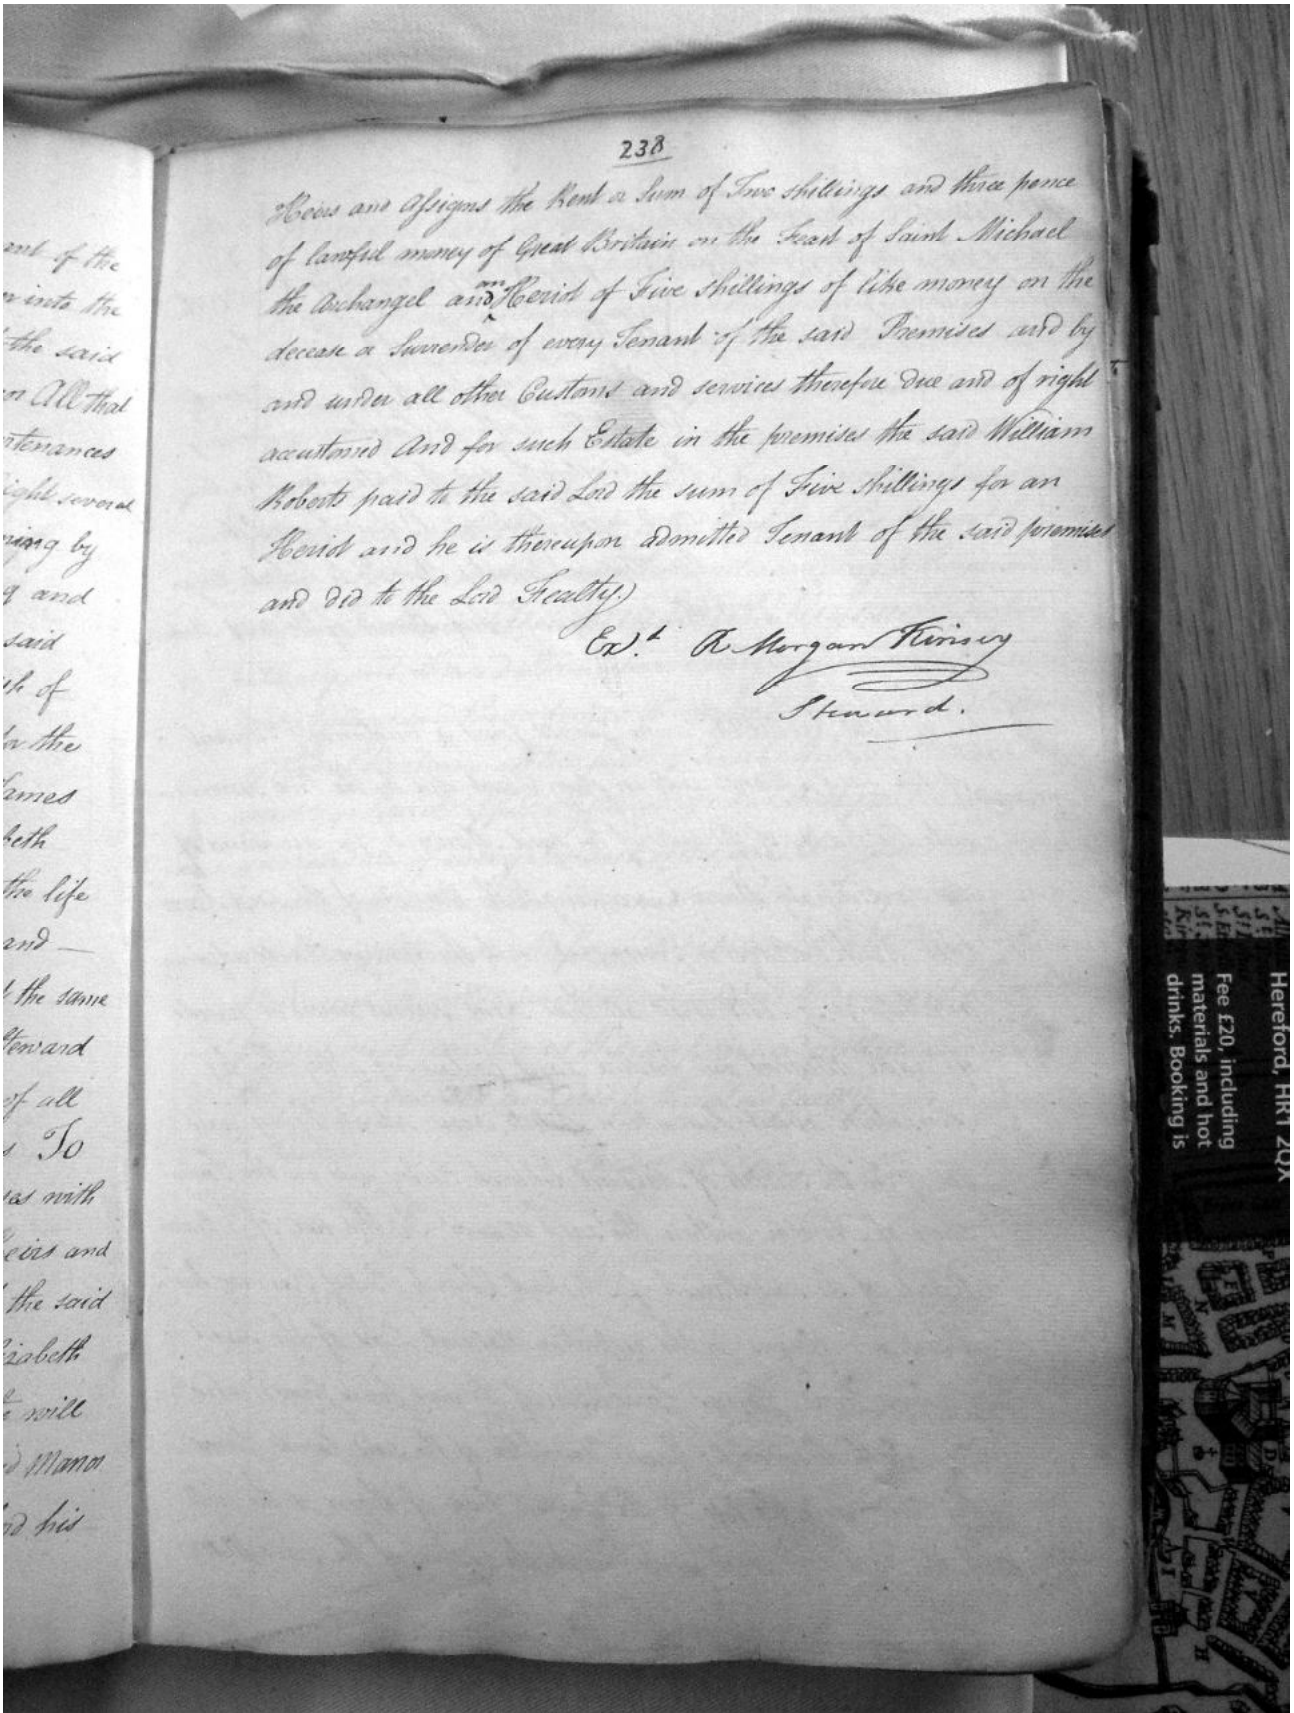 ant of the
er into the
the said
on All that
rtenances
ight several
ning by
g and
said
th of
for the
James
beth
the life
and —
t the same
Steward
of all
s To
ses with
Heirs and
the said
Elizabeth
will
Manor
his
238
Heirs and Assigns the Rent or Sum of Two shillings and three pence
of lawful money of Great Britain on the Feast of Saint Michael
the Archangel and an Heriot of Five shillings of like money on the
decease or Surrender of every Tenant of the said Premises and by
and under all other Customs and services therefore due and of right
accustomed And for such Estate in the premises the said William
Roberts paid to the said Lord the sum of Five shillings for an
Heriot and he is thereupon admitted Tenant of the said premises
and did to the Lord Fealty.)
Exd. R Morgan Kinsey
Steward.
Hereford, HR1 2QX
Fee £20, including
materials and hot
drinks. Booking is